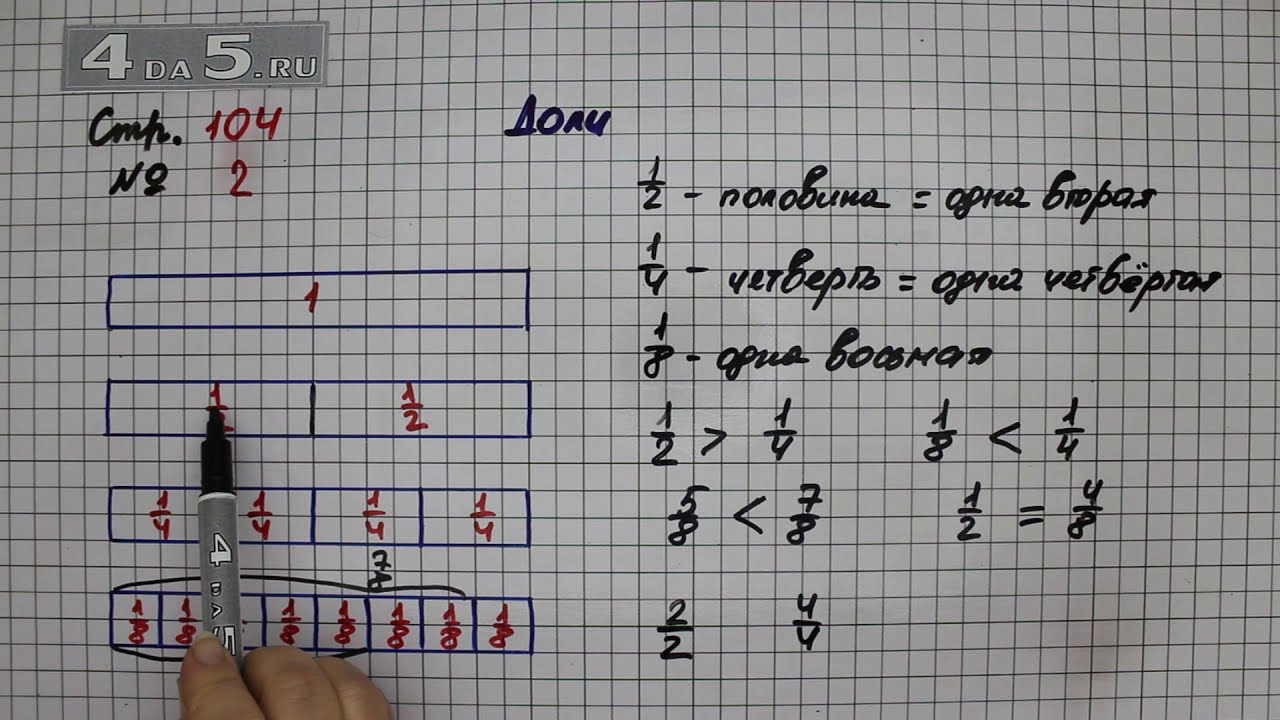 4DA5.RU
Стр. 104
№ 2
Доли
1/2 - половина = одна вторая
1/4 - четверть = одна четвёртая
1/8 - одна восьмая
1/2 > 1/4
1/8 < 1/4
5/8 < 7/8
1/2 = 4/8
2/2 4/4
1
1/2 1/2
1/4 1/4 1/4 1/4
7/8
1/8 1/8 1/8 1/8 1/8 1/8 1/8
4DA5